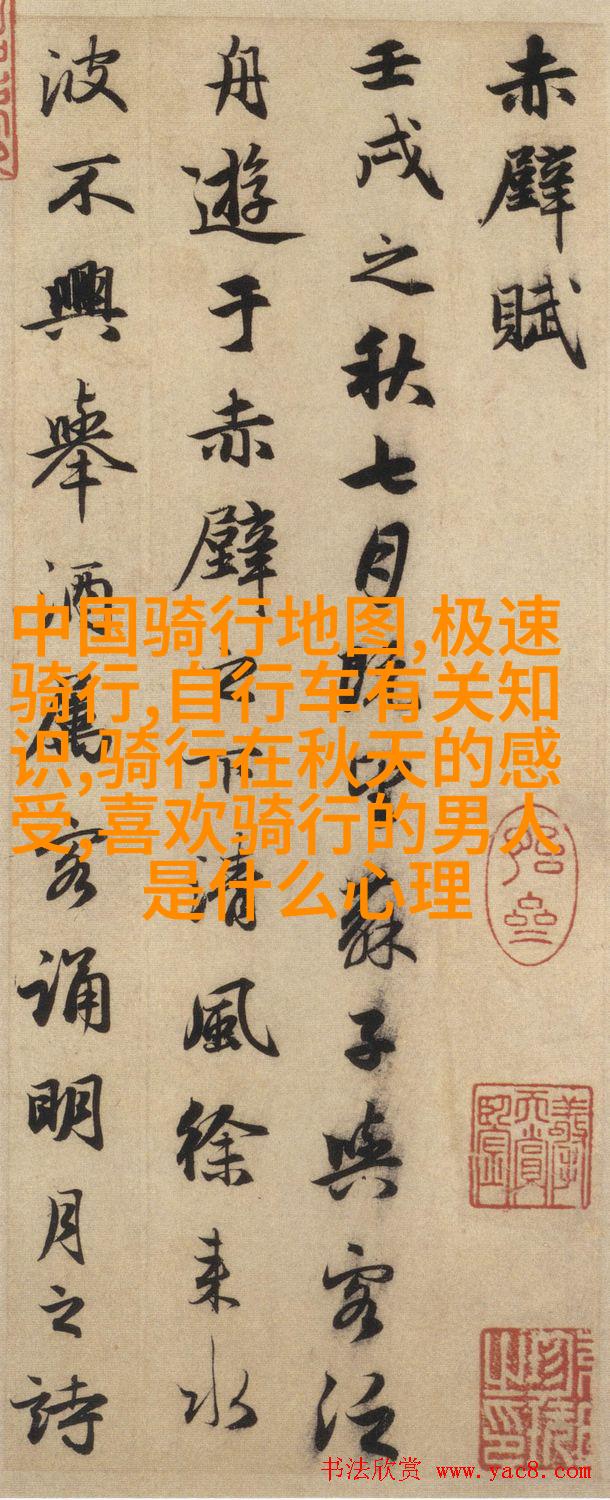 赤壁賦
壬戌之秋七月既望蘇子與客泛
舟遊于赤壁之下清風徐来水
波不興舉酒屬客誦明月之詩
中国骑行地图,极速
骑行,自行车有关知
识,骑行在秋天的感
受,喜欢骑行的男人
是什么心理
书法欣赏 www.yac8.com